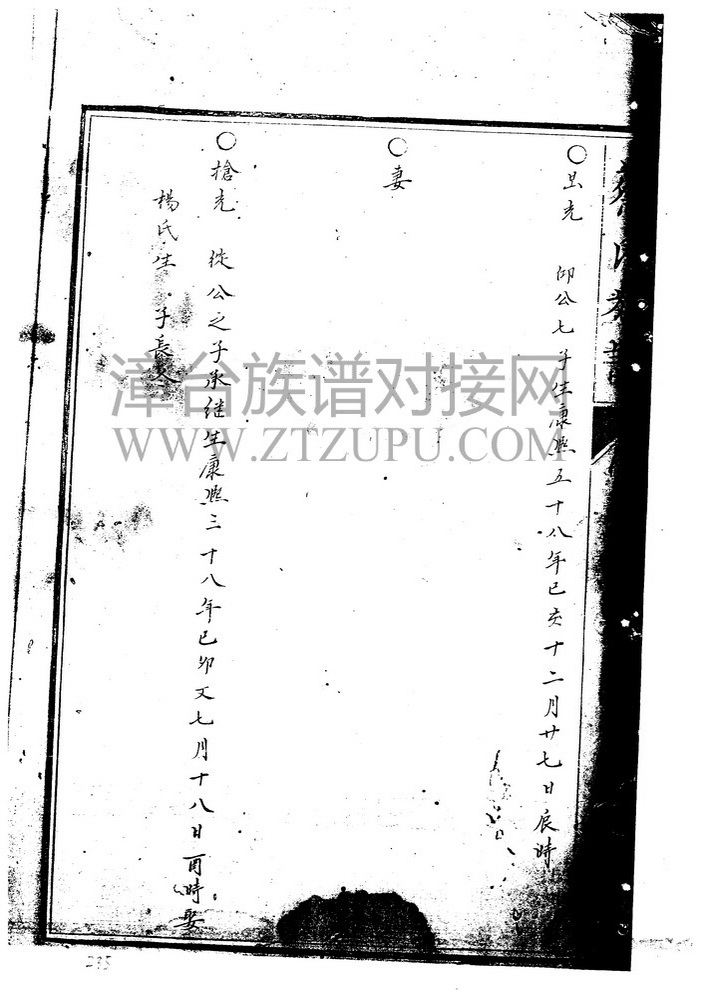 ○昌先 印公七子生康熙五十八年己亥十二月廿七日辰時
○妻
○搶先 從公之子承继生康熙三十八年己卯又七月十八日酉時娶
楊氏生 子長
漳台族谱对接网
WWW.ZTZUPU.COM
235